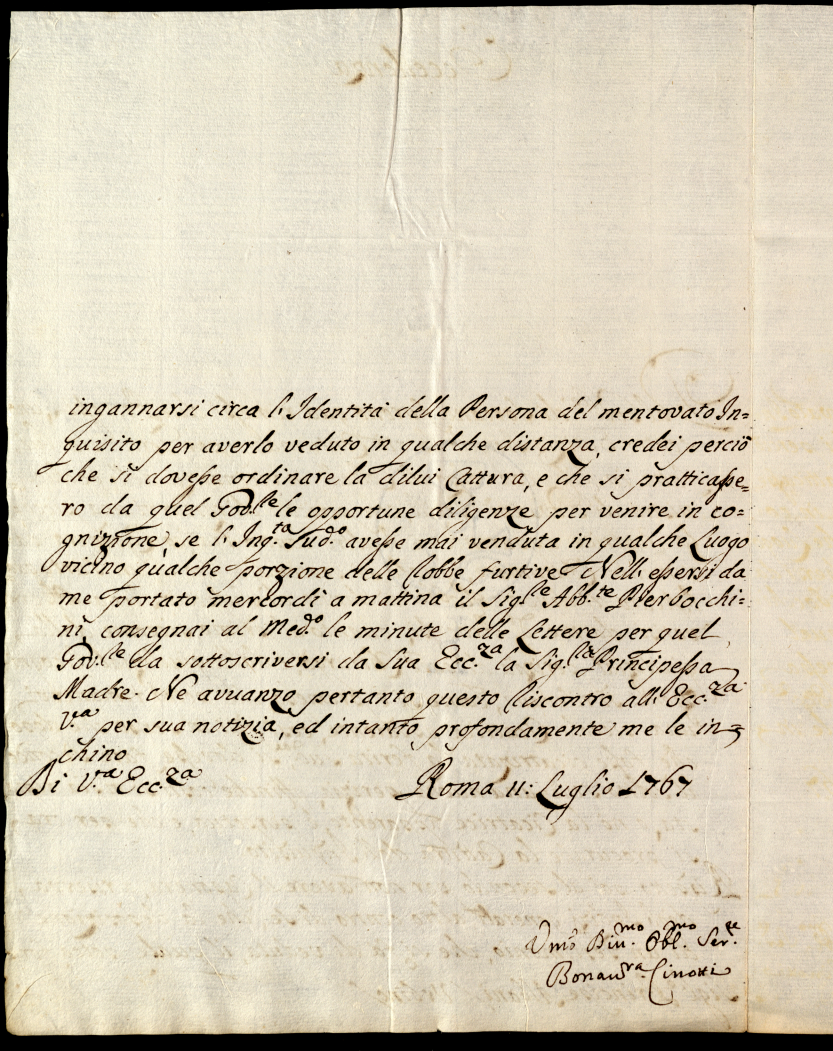 ingannarsi circa l'Identità della Persona del mentovato In=
quisito per averlo veduto in qualche distanza, credei perciò
che si dovesse ordinare la dilui Cattura, e che si pratticasse=
ro da quel Gov.le le opportune diligenze per venire in co=
gnizione, se l'Inq.to Sud.o avesse mai venduta in qualche Luogo
vicino qualche porzione delle Robbe furtive. Nell'essersi da
me portato mercordì a mattina il Sig.le Abb.te Pierbocchi=
ni, consegnai al Med.o le minute delle Lettere per quel
Gov.le da sottoscriversi da Sua Ecc.za la Sig.ra Principessa
Madre. Ne avuanzo pertanto questo Riscontro all'Ecc.za
V.a per sua notizia, ed intanto profondamente me le in=
chino
Di V.a Ecc.za Roma 11: Luglio 1767
Umo Div.mo Obbl.mo Ser.e
Bonav.ra Cinotti